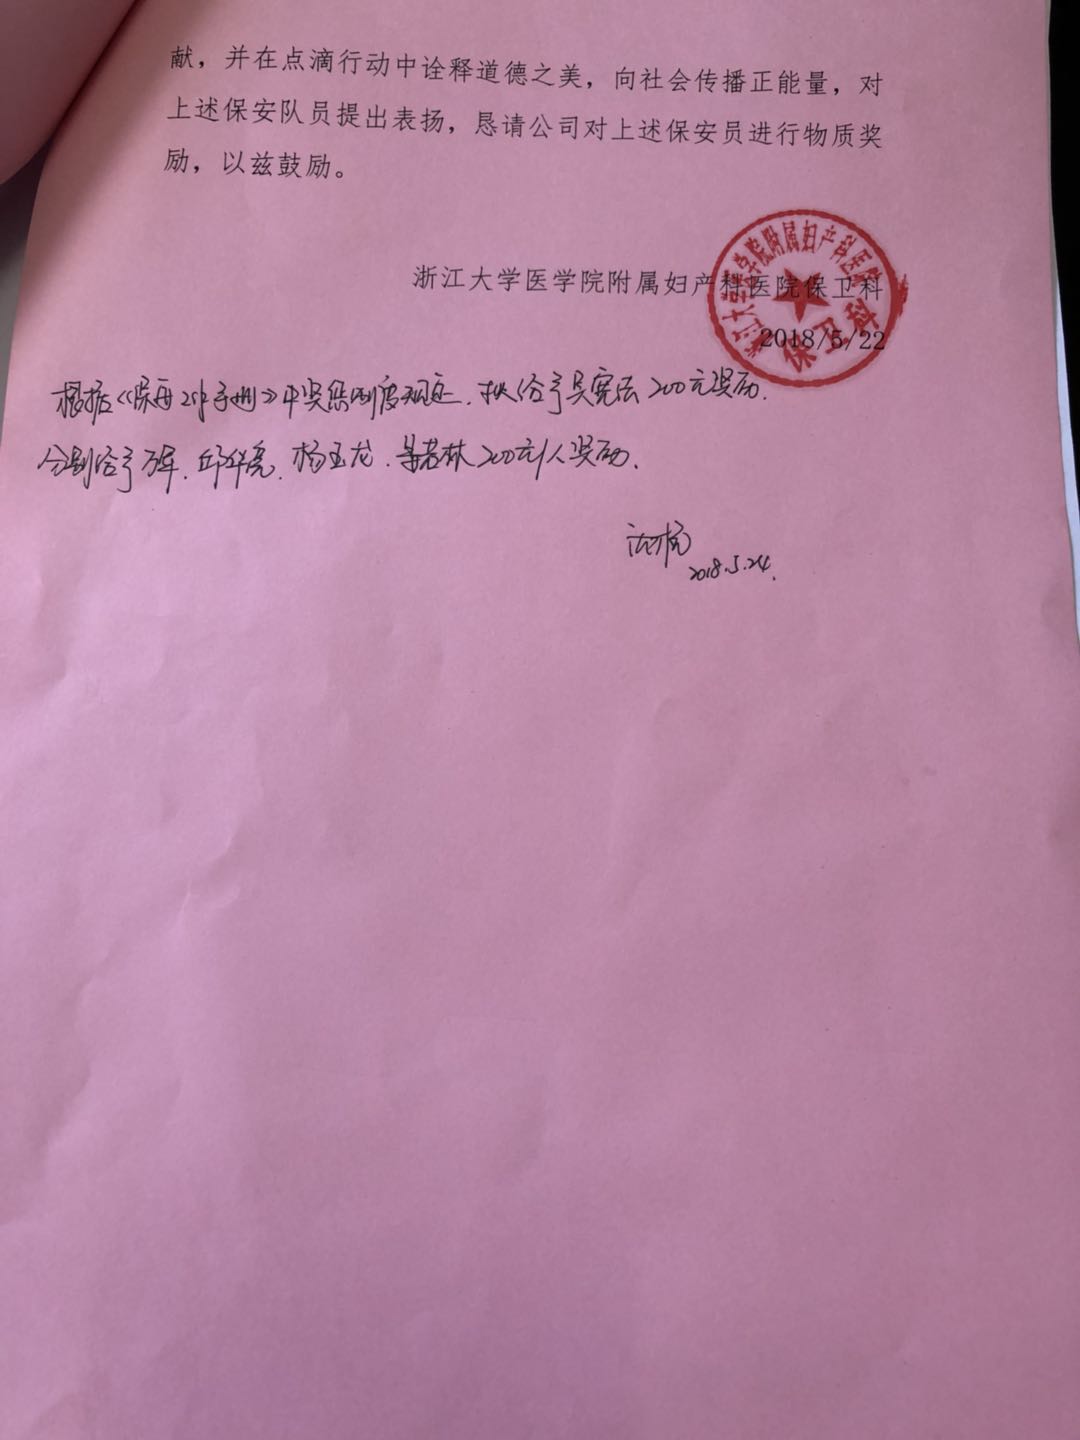 献，并在点滴行动中诠释道德之美，向社会传播正能量，对
上述保安队员提出表扬，恳请公司对上述保安员进行物质奖
励，以兹鼓励。
浙江大学医学院附属妇产科医院
保卫科
浙江大学医学院附属妇产科医院保卫科
2018/5/22
根据《手册》中奖惩制度规定，给予吴宪法200元奖励.
分别给予万军、邱华亮、杨玉龙、林200元/人奖励.
2018.5.24.